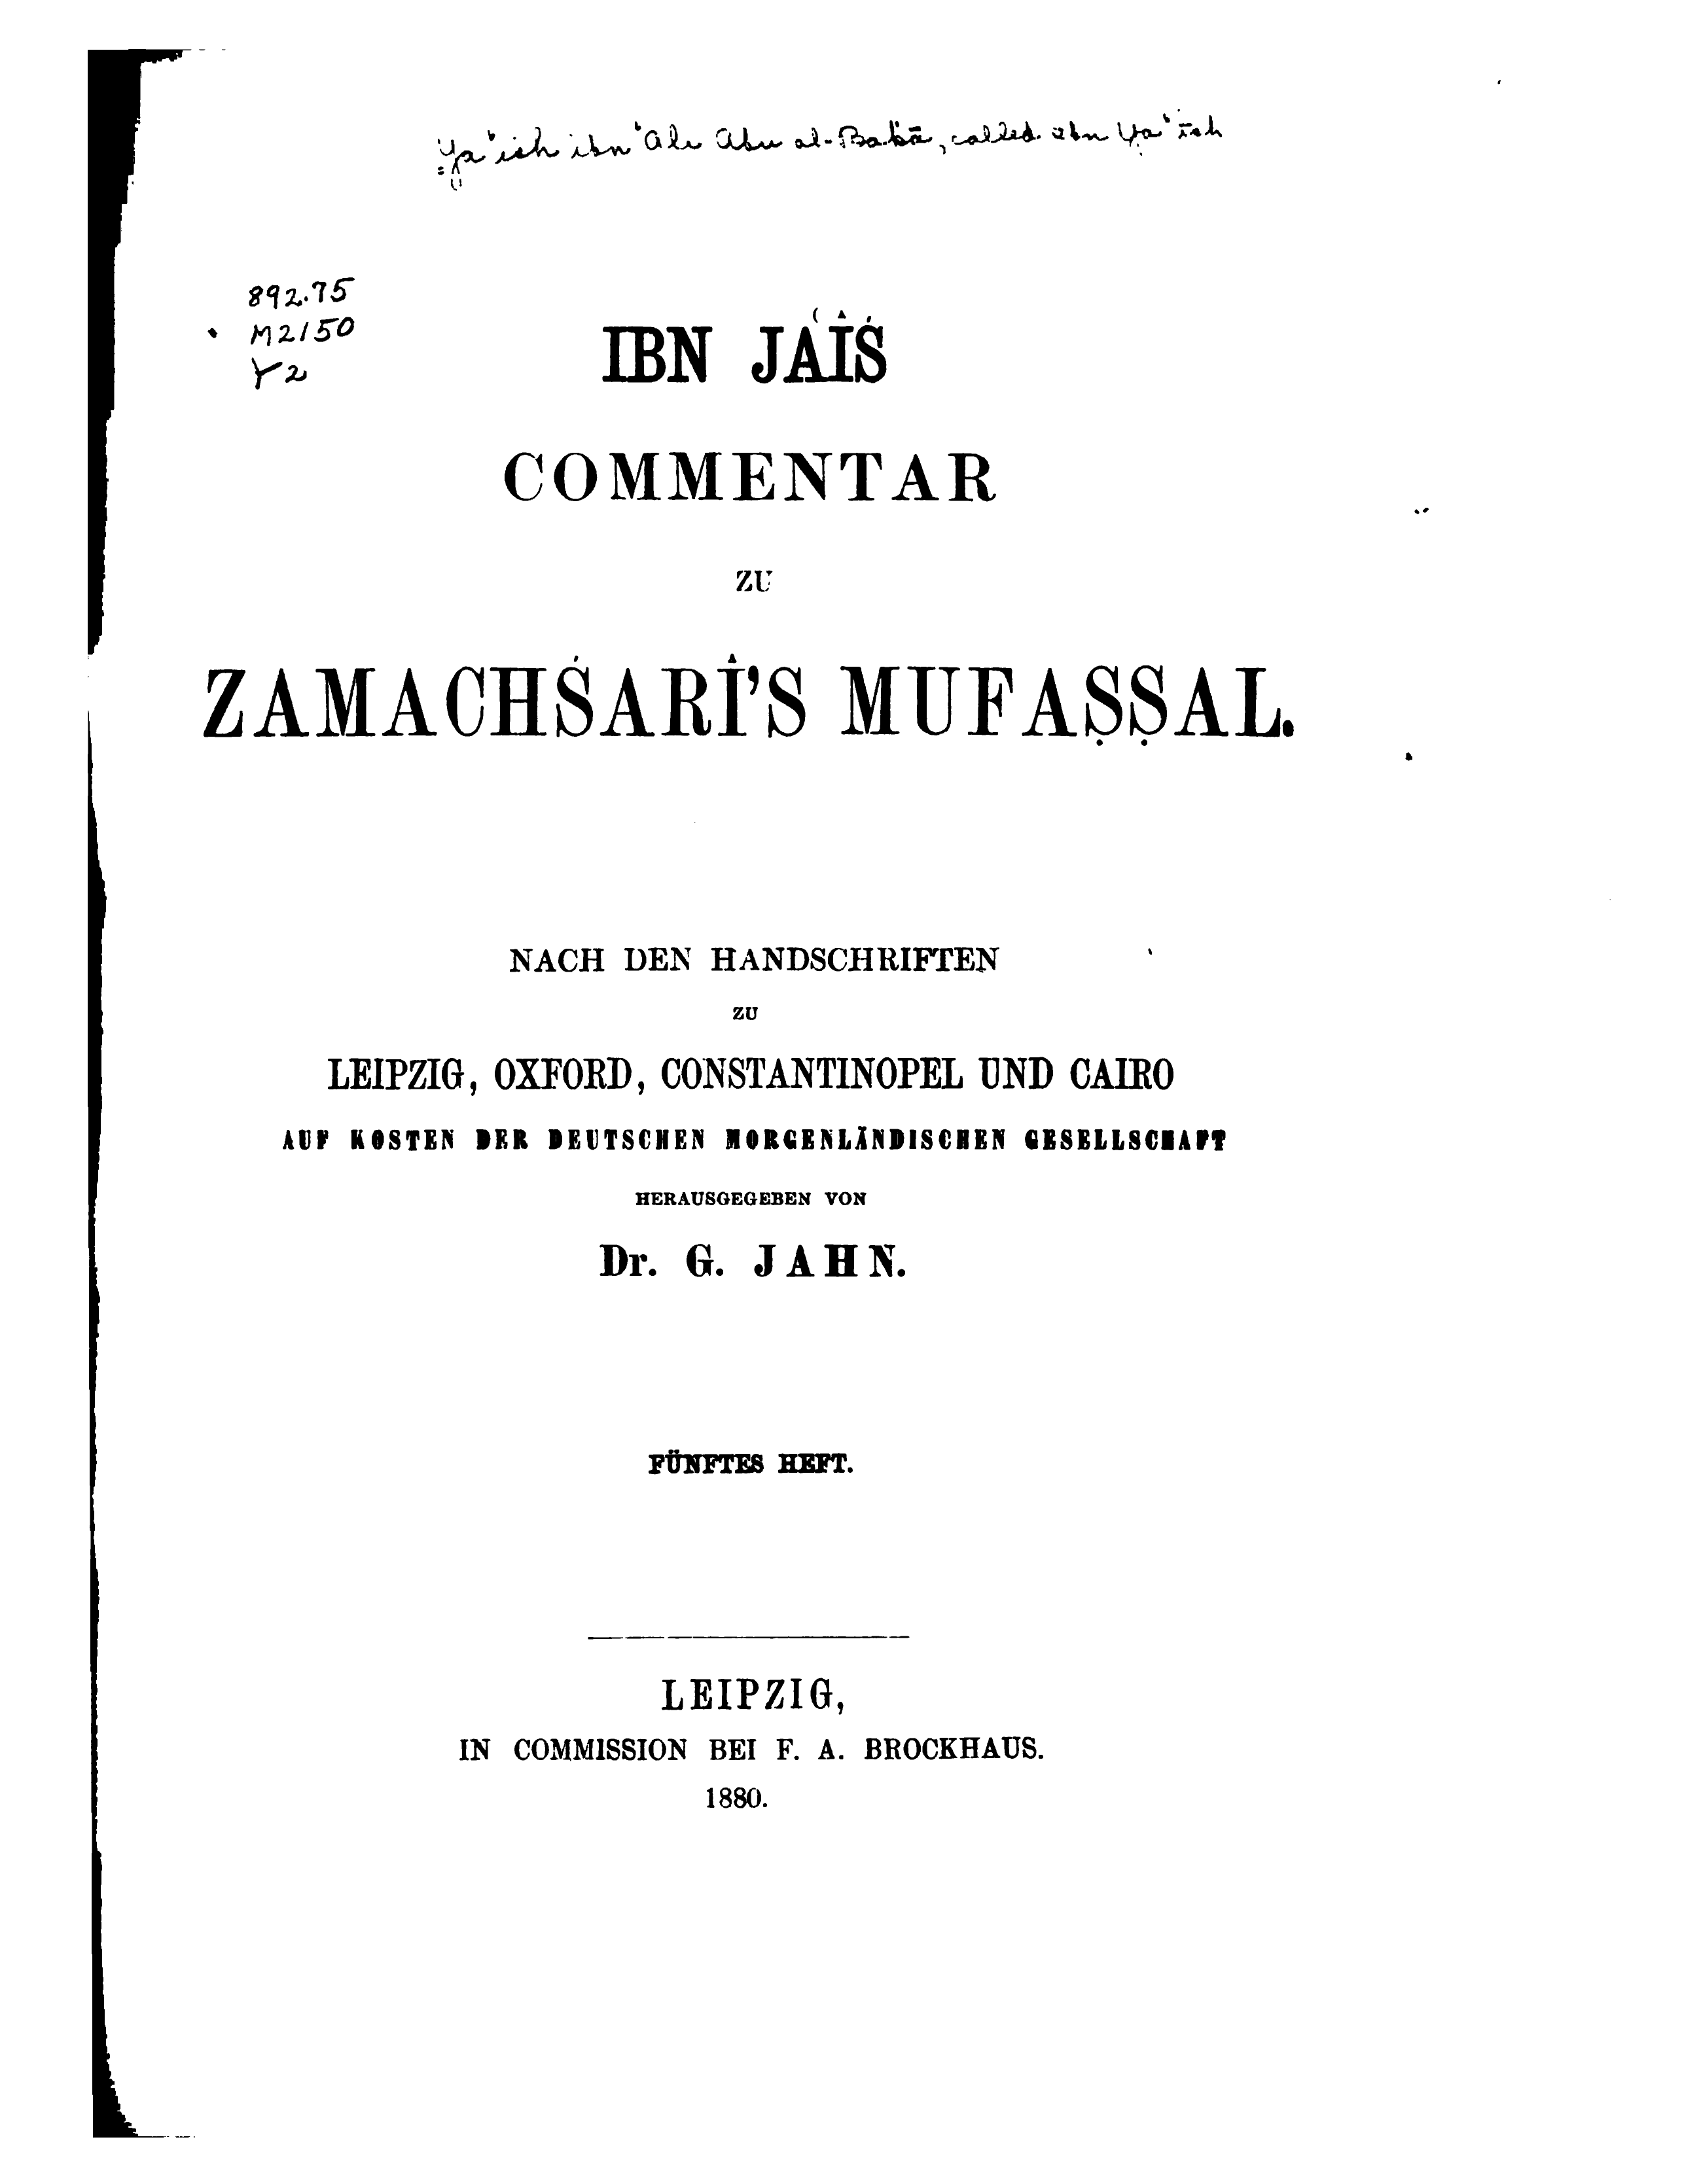 Ya'ish ibn 'Ali Abu al-Bakā, called ibn Ya'ish
892.75
M2150
Y2
IBN JAʿÎŚ
COMMENTAR
ZU
ZAMACHŚARÎ'S MUFAṢṢAL.
NACH DEN HANDSCHRIFTEN
ZU
LEIPZIG, OXFORD, CONSTANTINOPEL UND CAIRO
AUF KOSTEN DER DEUTSCHEN MORGENLÄNDISCHEN GESELLSCHAFT
HERAUSGEGEBEN VON
Dr. G. JAHN.
FÜNFTES HEFT.
LEIPZIG,
IN COMMISSION BEI F. A. BROCKHAUS.
1880.